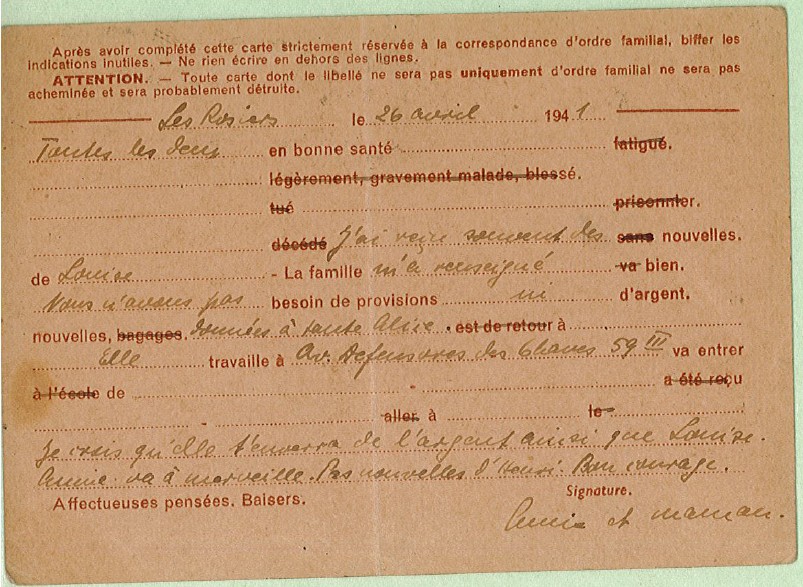 Après avoir complété cette carte strictement réservée à la correspondance d'ordre familial, biffer les
indications inutiles. — Ne rien écrire en dehors des lignes.
ATTENTION. — Toute carte dont le libellé ne sera pas uniquement d'ordre familial ne sera pas
acheminée et sera probablement détruite.
Les Rosiers le 26 avril 1941
Toutes les deux en bonne santé fatigué.
légèrement, gravement malade, blessé.
tué prisonnier.
décédé J'ai reçu souvent des sans nouvelles.
de Louise - La famille m'a renseigné va bien.
Nous n'avons pas besoin de provisions ni d'argent.
nouvelles, bagages. données à tante Alice. est de retour à
Elle travaille à Av. des 59 III va entrer
à l'école de a été reçu
aller à le
Je crois qu'elle t'enverra de l'argent ainsi que Louise.
Annie va à merveille. Pas nouvelles d'Henri. Bon courage.
Affectueuses pensées. Baisers. Signature.
Annie et maman.